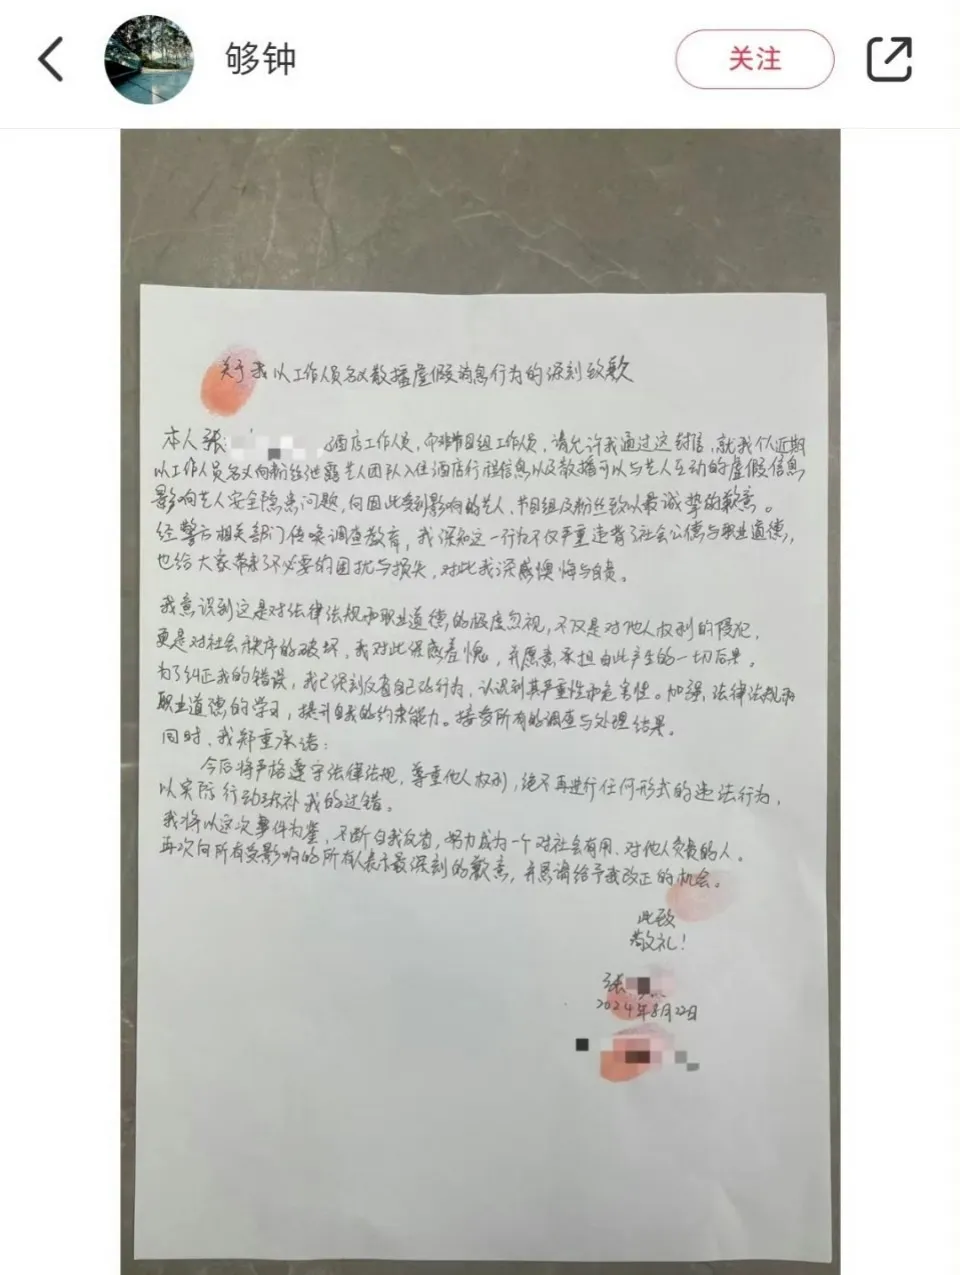 够钟
关注
关于我以工作人员名义散播虚假消息行为的深刻致歉
本人张 酒店工作人员，非节目组工作人员，请允许我通过这封信，就我个人近期
以工作人员名义向粉丝泄露艺人团队入住酒店行程信息以及散播可以与艺人互动的虚假信息
影响艺人安全隐患问题，向因此受到影响的艺人、节目组及粉丝致以最诚挚的歉意。
经警方相关部门传唤调查教育，我深知这一行为不仅严重违背了社会公德与职业道德，
也给大家带来了不必要的困扰与损失，对此我深感懊悔与自责。
我意识到这是对法律法规和职业道德的极度忽视，不仅是对他人权利的侵犯，
更是对社会秩序的破坏，我对此深感羞愧，并愿意承担由此产生的一切后果。
为了纠正我的错误，我已深刻反省自己的行为，认识到其严重性和危害性。加强法律法规和
职业道德的学习，提升自我的约束能力。接受所有的调查与处理结果。
同时，我郑重承诺：
今后将严格遵守法律法规，尊重他人权利，绝不再进行任何形式的违法行为，
以实际行动弥补我的过错。
我将以这次事件为鉴，不断自我反省，努力成为一个对社会有用、对他人负责的人。
再次向所有受影响的所有人表示最深刻的歉意，并恳请给予我改正的机会。
此致
敬礼！
张
2024年8月22日